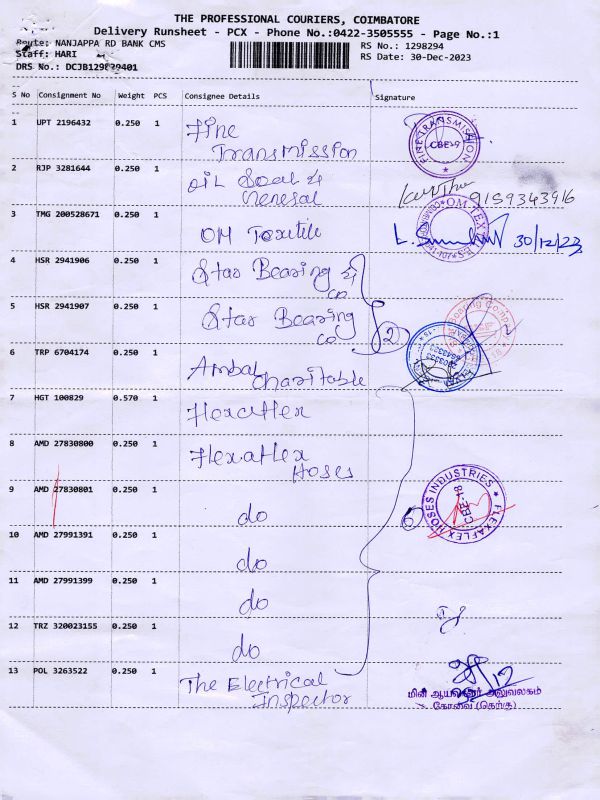 THE PROFESSIONAL COURIERS, COIMBATORE
Delivery Runsheet - PCX - Phone No.:0422-3505555 - Page No.:1
Route: NANJAPPA RD BANK CMS
RS No.: 1298294
Staff: HARI
RS Date: 30-Dec-2023
DRS No.:
S No Consignment No Weight PCS Consignee Details Signature
1 UPT 2196432 0.250 1 Fine Transmission
FINE TRANSMISSION
CBE-9
2 RJP 3281644 0.250 1 OIL Seal & General
9159343916
3 TMG 200528671 0.250 1 OM Textile
OM TEX
30/12/23
4 HSR 2941906 0.250 1 Star Bearing & co
5 HSR 2941907 0.250 1 Star Bearing co
2
Bearing Comp
6 TRP 6704174 0.250 1 Ambal Charitable
7 HGT 100829 0.570 1 Flexaflex
8 AMD 27830800 0.250 1 Flexaflex Hoses
9 AMD 27830801 0.250 1 do
6
FLEXAFLEX HOSES INDUSTRIES
CBE-18
10 AMD 27991391 0.250 1 do
11 AMD 27991399 0.250 1 do
12 TRZ 320023155 0.250 1 do
13 POL 3263522 0.250 1 The Electrical Inspector
மின் ஆய்வாளர் அலுவலகம்
கோவை (தெற்கு)